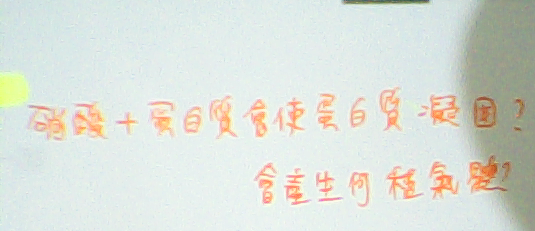 硝酸+蛋白質會使蛋白質凝固?
會產生何種氣體?